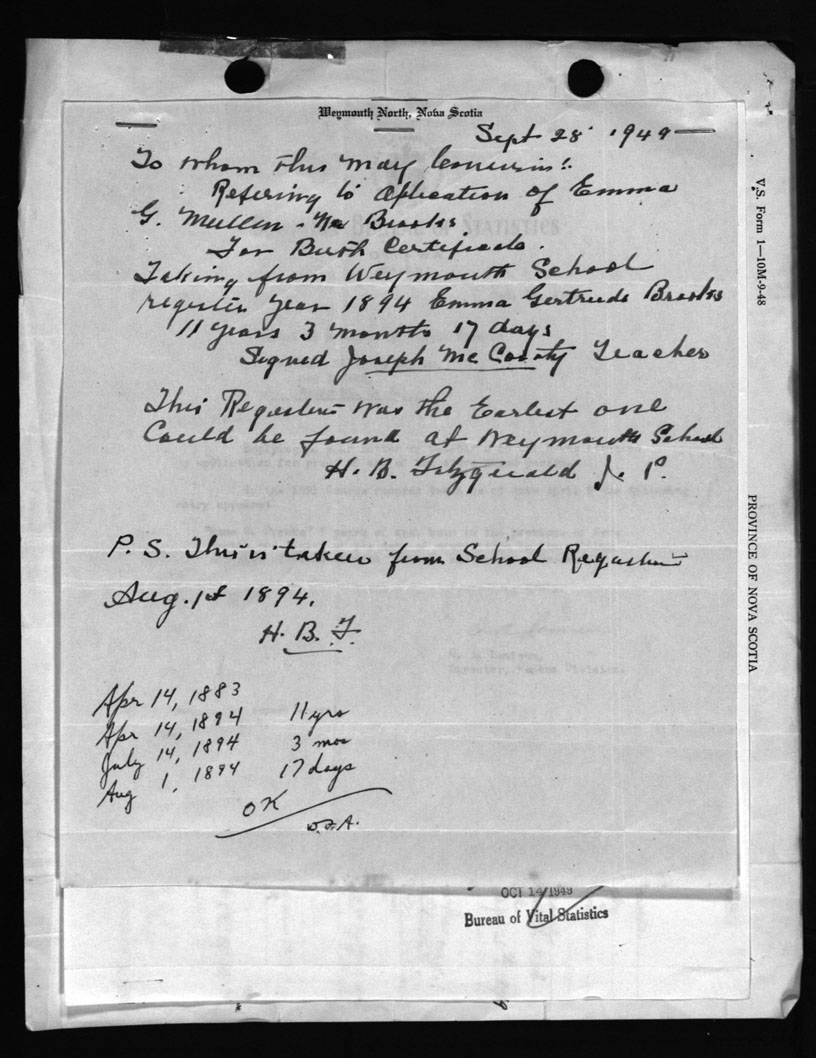 Weymouth North, Nova Scotia
Sept 28 1949
To whom this may Concern:
Refering to Aplication of Emma
G. Mullen - Ne Brooks.
For Birth Certificate.
Taking from Weymouth School
register year 1894 Emma Gertrude Brooks
11 years 3 months 17 days
Signed Joseph McCarty Teacher
This Register was the Earlest one
Could be found at Weymouth School
H. B. Fitzgerald J. P.
P. S. This is taken from School Register
Aug. 1st 1894.
H. B. F
Apr 14, 1883
Apr 14, 1894 11 yrs
July 14, 1894 3 mos
Aug 1, 1894 17 days
OK
D.F.A.
OCT 14 1949
Bureau of Vital Statistics
V.S. Form 1—10M-9-48
PROVINCE OF NOVA SCOTIA